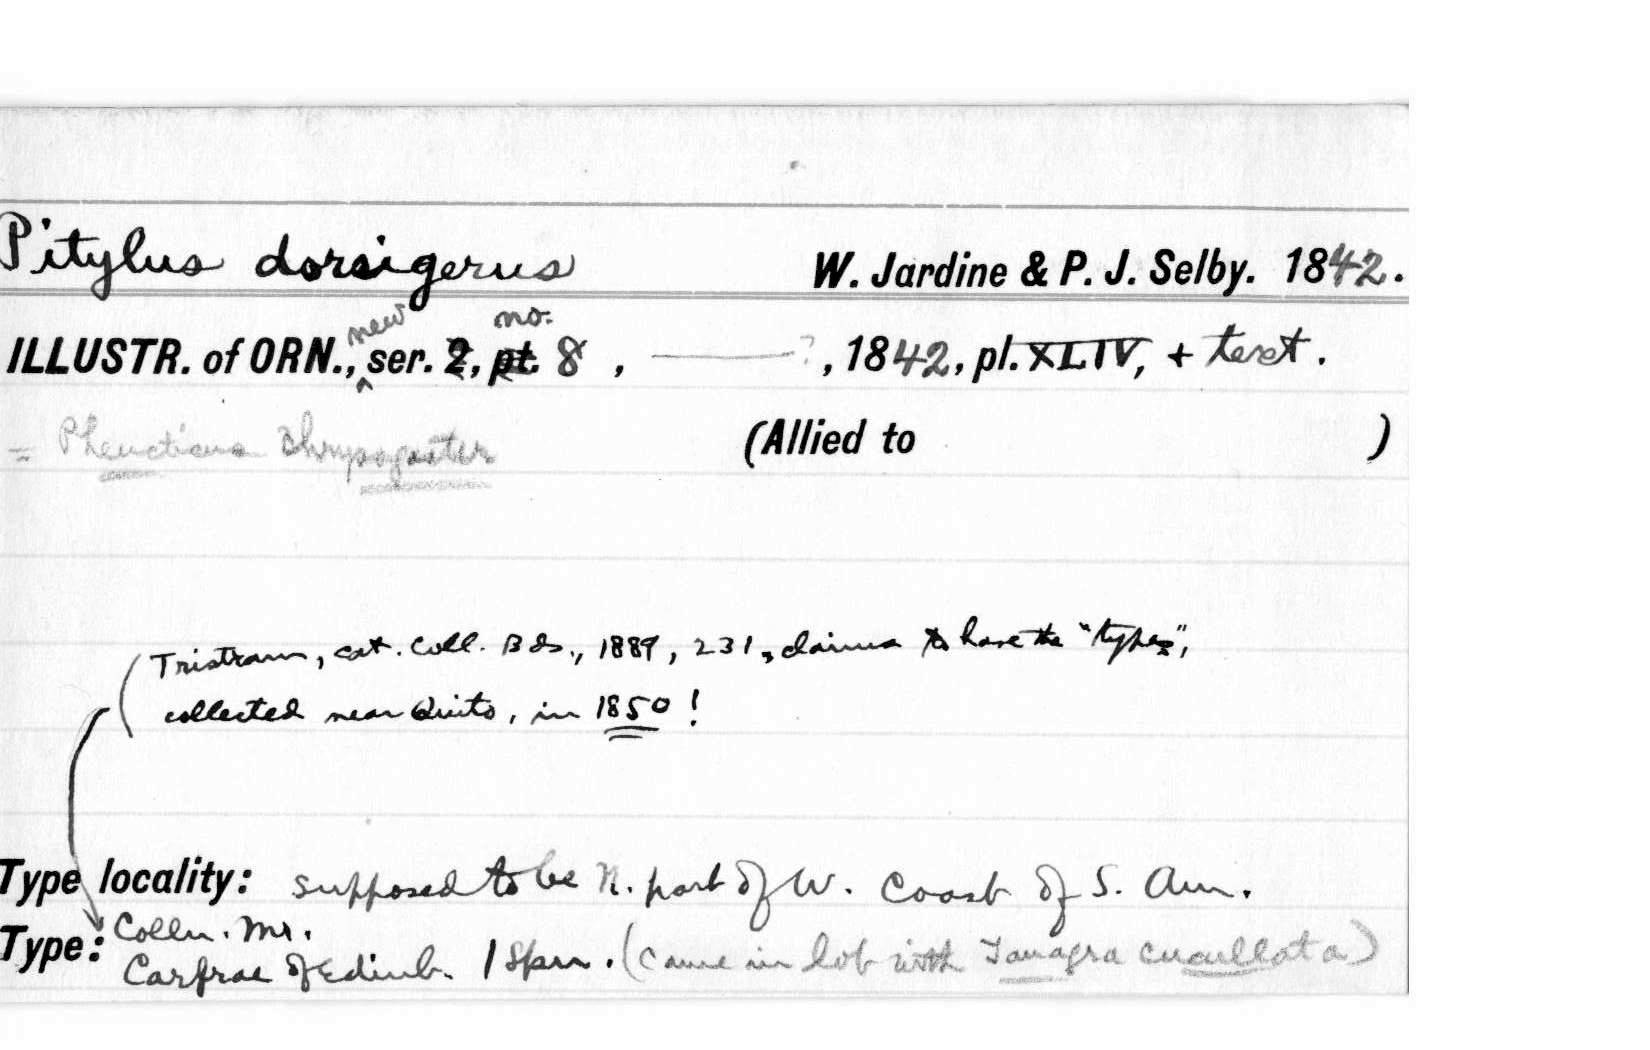 Pitylus dorsigerus W. Jardine & P. J. Selby. 1842.
new no.
ILLUSTR. of ORN., ser. 2, pt. 8, ——? , 1842, pl. XLIV, + text.
= Pheucticus chrysogaster (Allied to )
(Tristram, cat. Coll. Bds., 1889, 231, claims to have the "types",
collected near Quito, in 1850!
Type locality: supposed to be N. part of W. Coast of S. Am.
Type: Colln. Mr.
Carfrae of Edinb. 1 Spm. (came in lot with Tanagra cucullata)